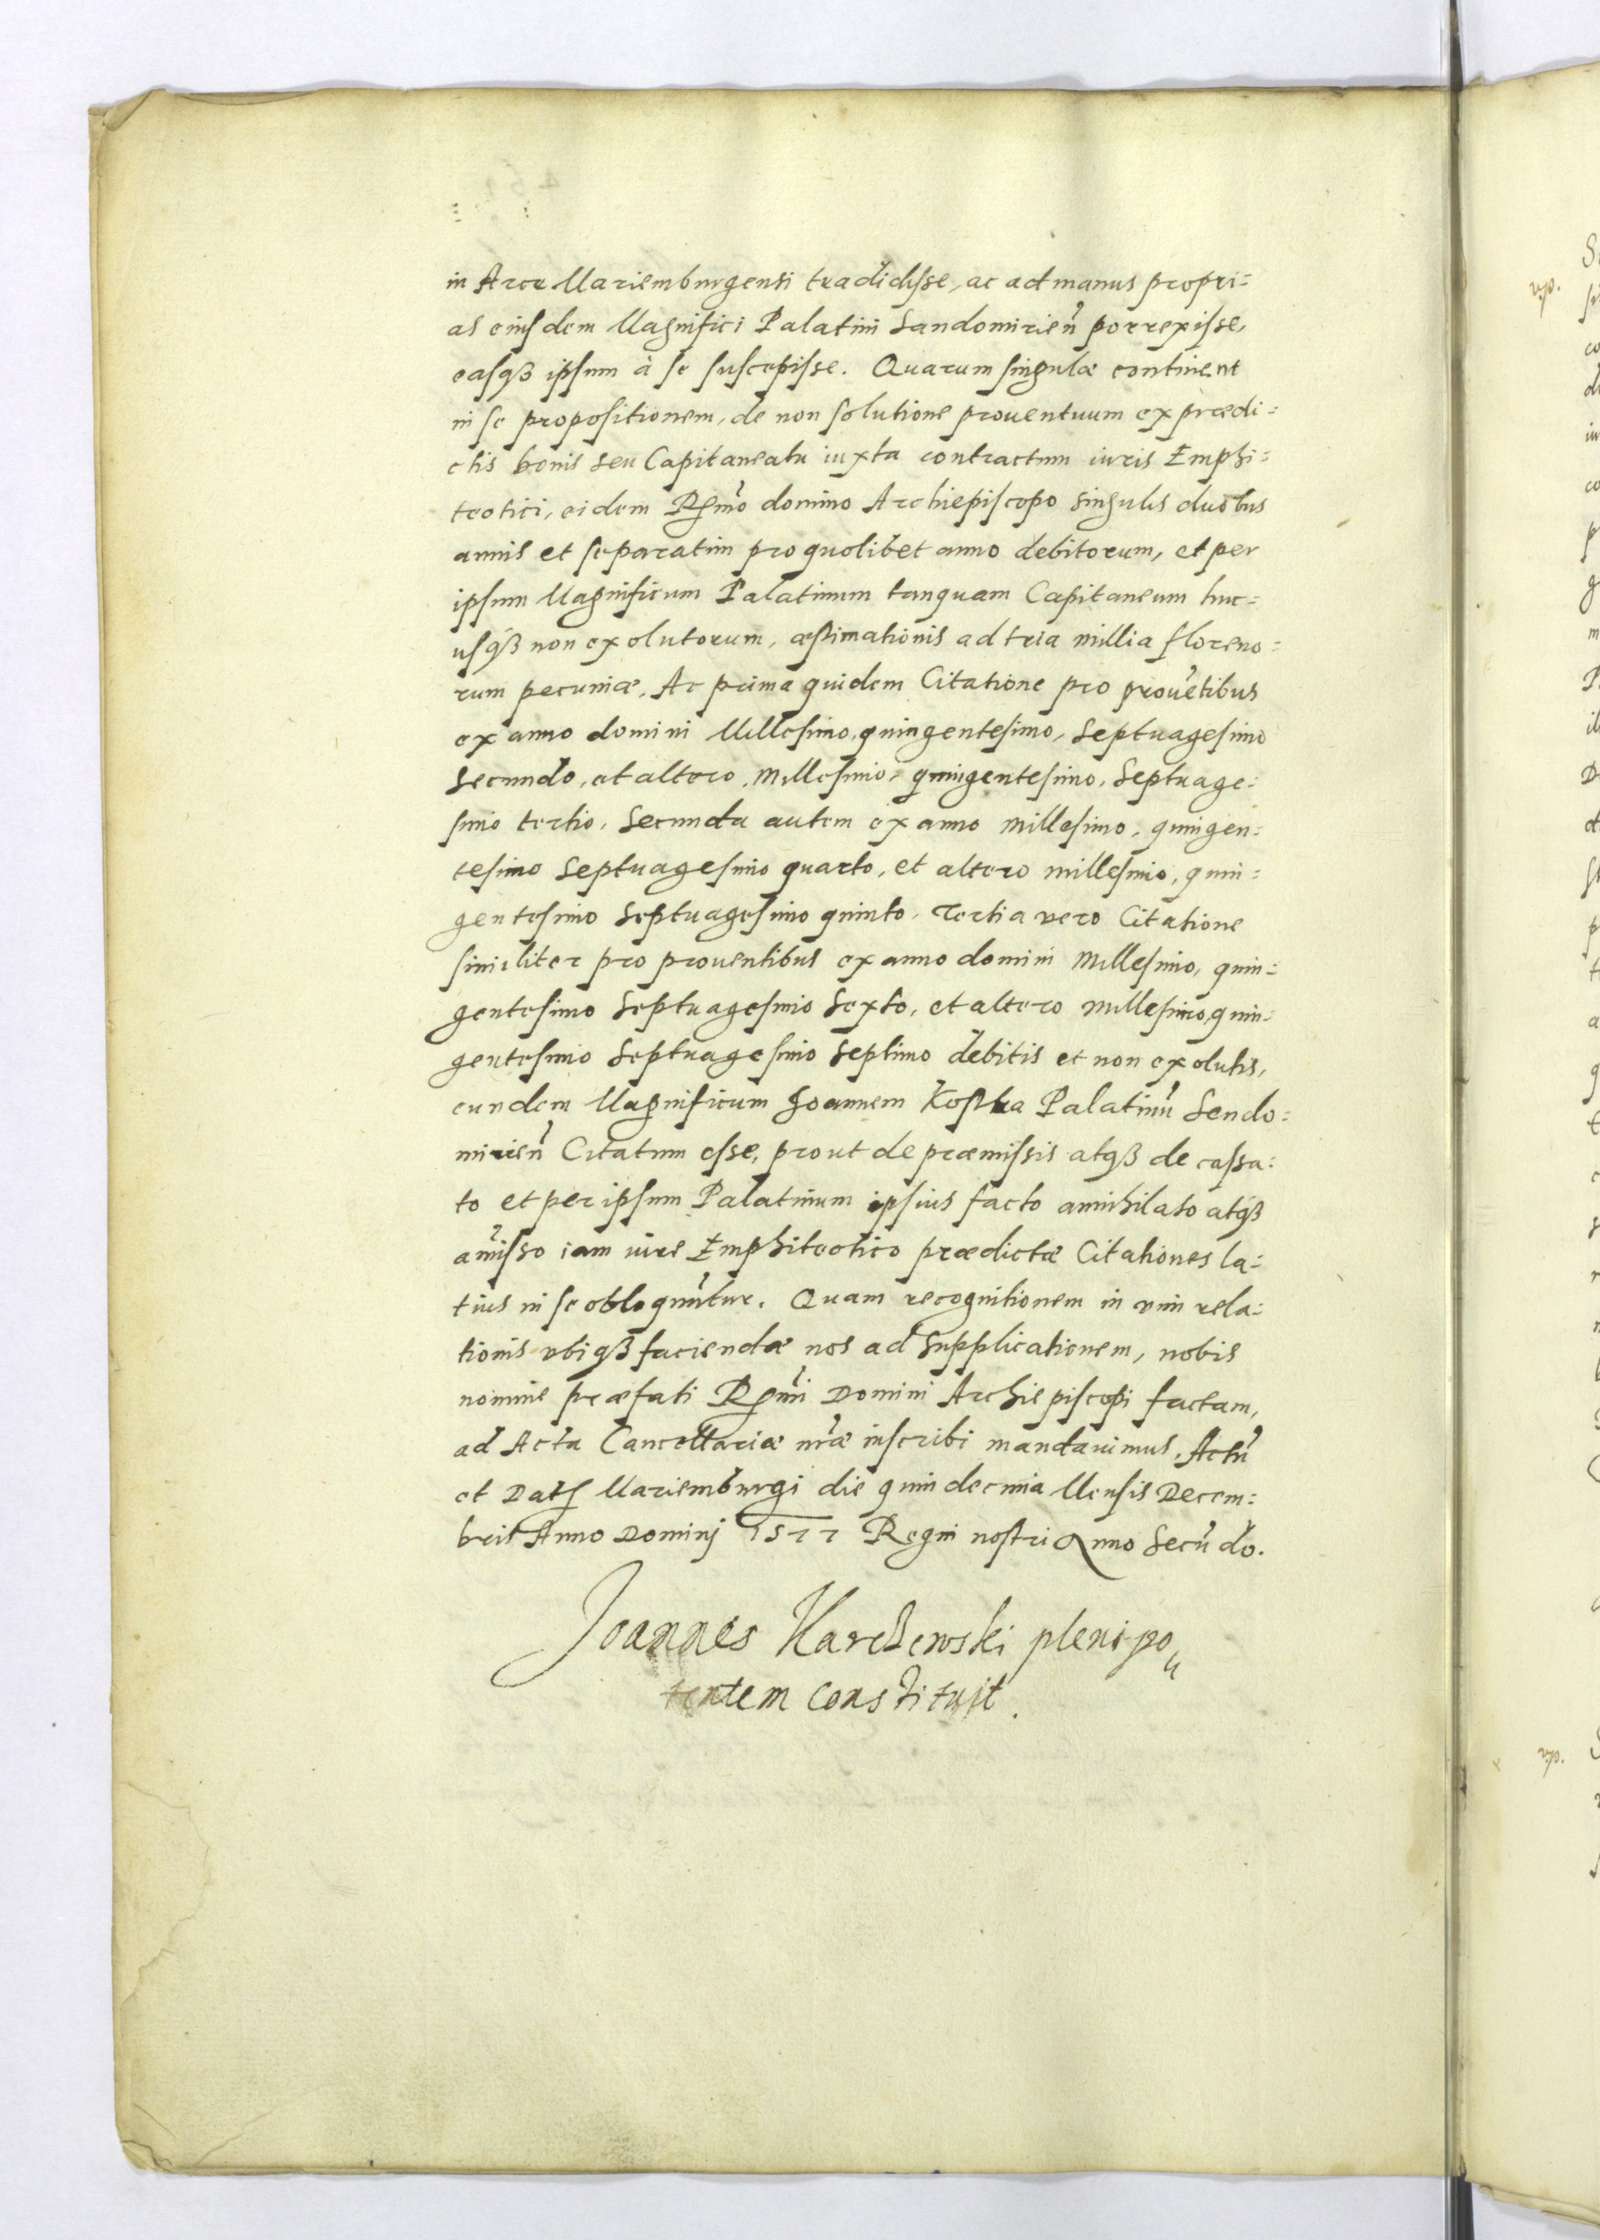 in Arce Mariemburgensi tradidisse, ac ad manus propri=
as eiusdem Magnifici Palatini Sandomirien̄ porrexisse,
easqȝ ipsum à se suscepisse. Quarum singulæ continent
in se propositionem, de non solutione prouentuum ex prædi=
ctis bonis seu Capitaneatu iuxta contractum iuris Emphi=
teotici, eidem Rm̄o domino Archiepiscopo singulis duobus
annis et separatim pro quolibet anno debitorum, et per
ipsum Magnificum Palatinum tanquam Capitaneum huc=
usqȝ non exolutorum, æstimationis ad tria millia floreno=
rum pecuniæ. Ac prima quidem Citatione pro prouētibus
ex anno domini Millesimo, quingentesimo, Septuagesimo
Secundo, et altero, Millesimo, quingentesimo, Septuage=
simo tertio, Secunda autem ex anno millesimo, quingen=
tesimo Septuagesimo quarto, et altero millesimo, quin=
gentesimo Septuagesimo quinto, Tertia vero Citatione
similiter pro prouentibus ex anno domini Millesimo, quin=
gentesimo Septuagesimo Sexto, et altero Millesimo, quin=
gentesimo Septuagesimo Septimo debitis et non exolutis,
eundem Magnificum Joannem Kostka Palatinū Sendo=
mirien̄ Citatum esse, prout de præmissis atqȝ de cassa=
to et per ipsum Palatinum ipsius facto annihilato atqȝ
amisso iam iure Emphiteotico prædictæ Citationes la=
tius in se obloquūtur. Quam recognitionem in vim rela=
tionis vbiqȝ faciendæ nos ad Supplicationem, nobis
nomine præfati Rm̄i Domini Archiepiscopi factam,
ad Acta Cancellariæ nr̄æ inscribi mandauimus. Actū
et Dat Mariemburgi die quindecima Mensis Decem=
bris Anno Dominj 1577 Regni nostri Anno Secūdo.
Joannes Karchewski plenipo„
tentem constituit.
vp.
vp.